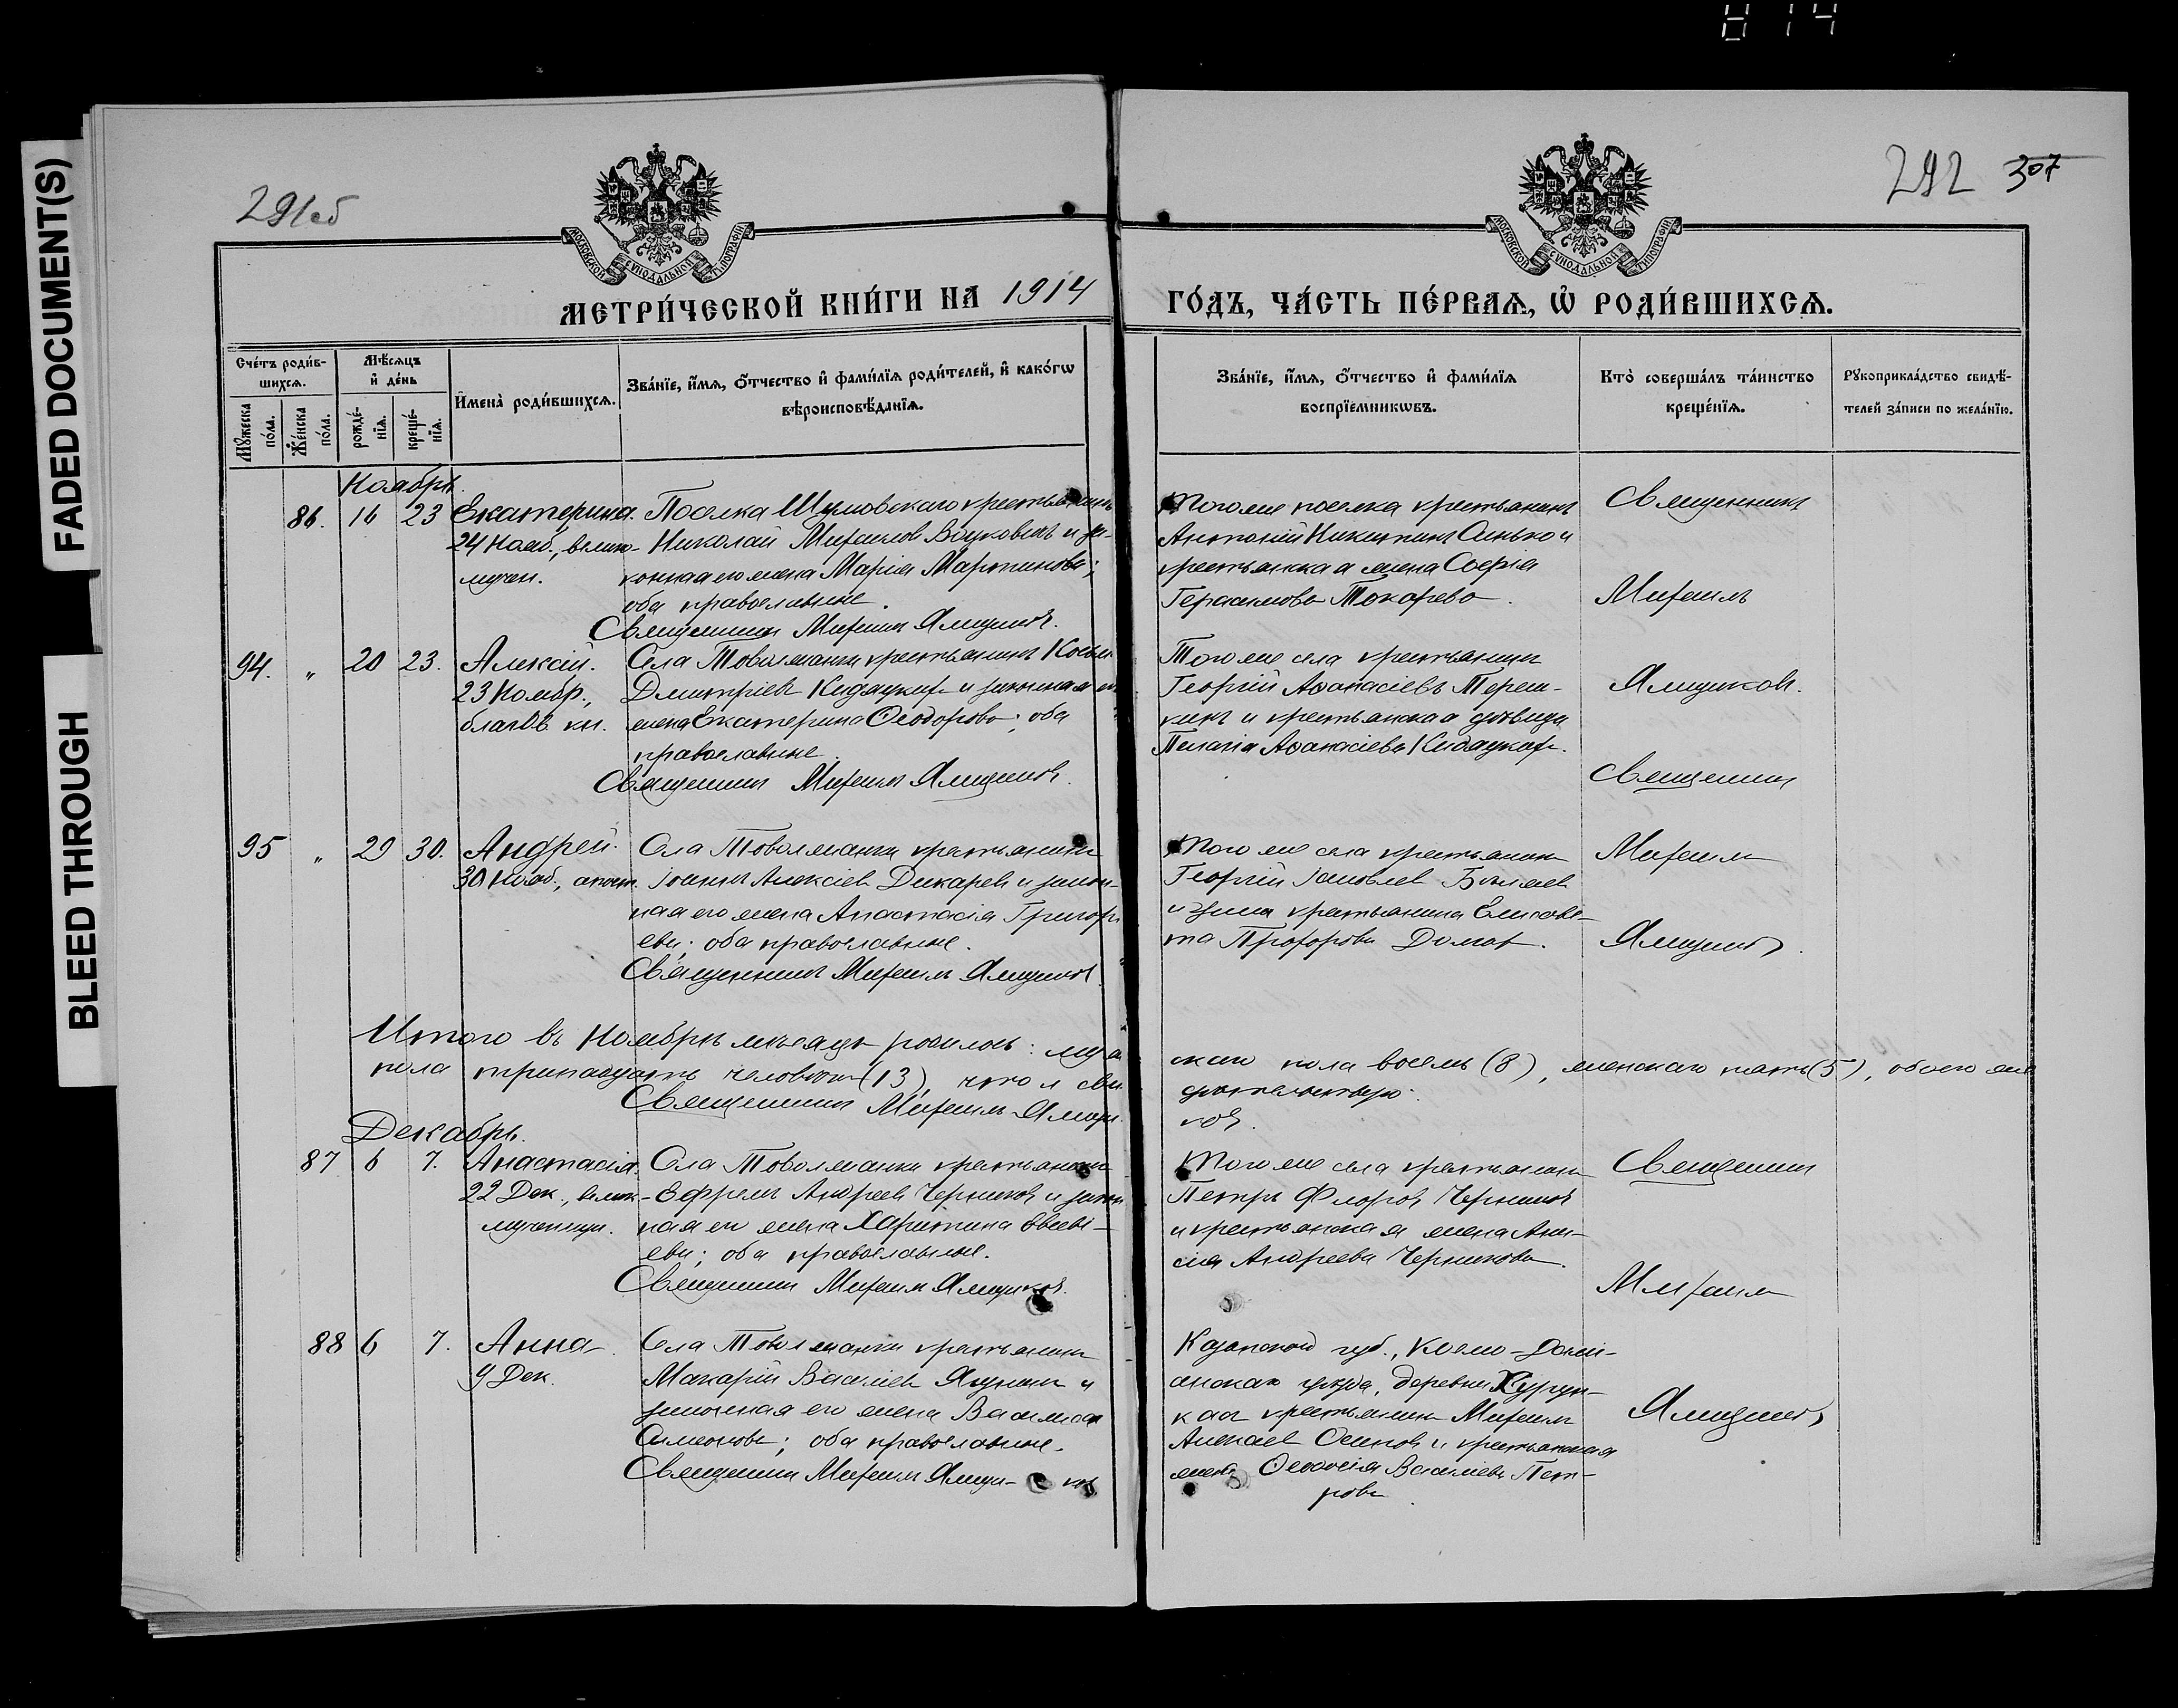 FADED DOCUMENT(S)
BLEED THROUGH
291об
292 307
МОСКОВСКОЙ СѴНОДАЛЬНОЙ ТИПОГРАФІИ
МОСКОВСКОЙ СѴНОДАЛЬНОЙ ТИПОГРАФІИ
МЕТРИ́ЧЕСКОЙ КНИ́ГИ НА 1914
ГО́ДЪ, ЧА́СТЬ ПЕ́РВАѦ, Ѡ҆ РОДИ́ВШИХСѦ.
Сче́тъ роди́в-
шихсѧ.
Мꙋ́жеска
по́ла.
Же́нска
по́ла.
Мѣ́сѧцъ
и҆ де́нь
рожде́-
нїѧ.
креще́-
нїѧ.
И҆мена̀ роди́вшихсѧ.
Зва́нїе, и҆́мѧ, ѻ҆́тчество и҆ фами́лїѧ роди́телей, и҆ како́гѡ
вѣроисповѣ́данїѧ.
Зва́нїе, и҆́мѧ, ѻ҆́тчество и҆ фами́лїѧ
воспрїе́мникѡвъ.
Кто̀ соверша́лъ та́инство
креще́нїѧ.
Рꙋкоприкла́дство свидѣ́-
телей за́писи по жела́нїю.
Ноябрь.
86. 16 23 Екатерина.
24 Нояб., велик-
мучен.
Поселка Шумовскаго крестьянинъ
Николай Михаиловъ и за-
конная его жена Марія Мартинова;
оба православные.
Священникъ Михаилъ Ямщиковъ.
Тогоже поселка крестьянинъ
Антоній Никитинъ и
крестьянская жена Софія
Герасимова Токарева.
Священникъ
Михаилъ
Ямщиковъ.
94. " 20 23. Алексій.
23 Ноябр.,
благов. кн.
Села Товолжанки крестьянинъ
Дмитріевъ и законная его
жена Екатерина Ѳеодорова; оба
православные.
Священникъ Михаилъ Ямщиковъ.
Того же села крестьянинъ
Георгій Аѳанасіевъ Тереш-
кинъ и крестьянская дѣвица
Пелагія Аѳанасіева
Священникъ
Михаилъ
Ямщиковъ.
95 " 29 30. Андрей.
30 Нояб., апост.
Села Товолжанки крестьянинъ
Іоаннъ Алексіевъ Дикаревъ и закон-
ная его жена Анастасія Григорі-
ева; оба православные.
Священникъ Михаилъ Ямщиковъ.
Того же села крестьянинъ
Георгій Іаковлевъ Бѣляевъ
и крестьянина Елисаве-
та Прохорова
Итого въ Ноябрѣ мѣсяцѣ родилось: муже
скаго пола восемь (8), женскаго пять (5), обоего же
пола тринадцать человѣкъ (13), что и сви
дѣтельствую.
Священникъ Михаилъ Ямщи
ковъ.
Декабрь.
87 6 7. Анастасія.
22 Дек., велик-
мученицы.
Села Товолжанки крестьянинъ
Ефремъ Андреевъ Черниковъ и закон
ная его жена Харитина Евсеві-
ева; оба православные.
Священникъ Михаилъ Ямщиковъ.
Того же села крестьянинъ
Петръ Флоровъ Черниковъ
и крестьянская жена Ани-
сія Андреева Черникова.
Священникъ
Михаилъ
Ямщиковъ
88 6 7. Анна.
9 Дек.
Села Товолжанки крестьянинъ
Макарій Василіевъ Якунинъ и
законная его жена Василиса
Симеонова; оба православные.
Священникъ Михаилъ Ямщи- ковъ
Казанской губ., Козмо-Дами-
анскаго уѣзда, деревни
крестьянинъ Михаилъ
Алексіевъ Осиповъ и крестьянская
жена Ѳеодосія Василіева Пет-
рова.